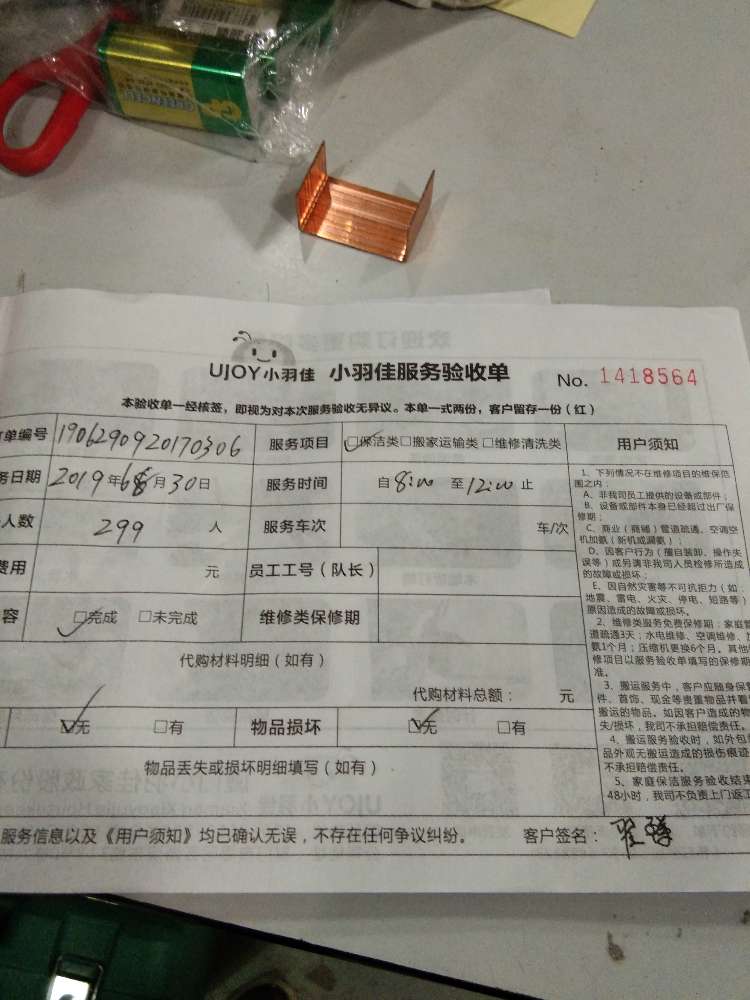 GREENCELL
UJOY小羽佳 小羽佳服务验收单 No. 1418564
本验收单一经核签，即视为对本次服务验收无异议。本单一式两份，客户留存一份（红）
单编号 1906290920170306 服务项目 □保洁类□搬家运输类□维修清洗类 用户须知
务日期 2019年6月30日 服务时间 自8:00 至12:00止
人数 299 人 服务车次 车/次
费用 元 员工工号（队长）
容 □完成 □未完成 维修类保修期
代购材料明细（如有）
代购材料总额： 元
□无 □有 物品损坏 □无 □有
物品丢失或损坏明细填写（如有）
1、下列情况不在维修项目的维保范
围之内：
A、非我司员工提供的设备或部件；
B、设备或部件本身已经超过出厂保
修期；
C、商业（商铺）管道疏通、空调空
机加氨（新机或漏氨）；
D、因客户行为（擅自装卸、操作失
误等）或另请非我司人员检修所造成
的故障或损坏；
E、因自然灾害等不可抗拒力（如：
地震、雷电、火灾、停电、短路等）
原因造成的故障或损坏。
2、维修类服务免费保修期：家庭管
道疏通3天；水电维修、空调维修、
氨1个月；压缩机更换6个月。其他
修项目以服务验收单填写的保修期
准。
3、搬运服务中，客户应随身保管
件、首饰、现金等贵重物品并看
搬运的物品。如因客户造成的物
失/损坏，我司不承担赔偿责任。
4、搬运服务验收时，如外包
品外观无搬运造成的损伤痕迹
不承担赔偿责任。
5、家庭保洁服务验收结束
48小时，我司不负责上门返工
服务信息以及《用户须知》均已确认无误，不存在任何争议纠纷。 客户签名：